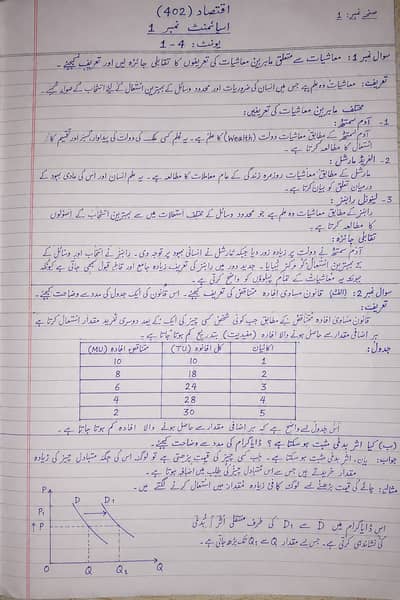 صفحہ نمبر: 1
اقتصاد (402)
اسائنمنٹ نمبر 1
یونٹ: 4 - 1
سوال نمبر 1: معاشیات سے متعلق ماہرین معاشیات کی تعریفوں کا تقابلی جائزہ لیں اور تعریف کیجئے۔
تعریف: معاشیات وہ علم ہے جس میں انسان کی ضروریات اور محدود وسائل کے بہترین استعمال کے لئے انتخاب کے
مختلف ماہرین معاشیات کی تعریفیں:
1- آدم سمتھ:
آدم سمتھ کے مطابق معاشیات دولت (Wealth) کا علم ہے۔ یہ علم کسی ملک کی دولت کی پیداوار اور تقسیم کا
استعمال کا مطالعہ کرتا ہے۔
2- الفریڈ مارشل:
مارشل کے مطابق معاشیات روزمرہ زندگی کے عام معاملات کا مطالعہ ہے۔ یہ علم انسان اور اس کی مادی بہبود کے
درمیان تعلق کو بیان کرتا ہے۔
3- لیونل رابنز:
رابنز کے مطابق معاشیات وہ علم ہے جو محدود وسائل کے مختلف استعمالات میں سے بہترین انتخاب کے اصولوں
کا مطالعہ کرتا ہے۔
تقابلی جائزہ:
آدم سمتھ نے دولت پر زیادہ زور دیا جبکہ مارشل نے انسانی بہبود پر توجہ دی۔ رابنز نے انتخاب اور وسائل کے
بہترین استعمال کو مرکز بنایا۔ جدید دور میں رابنز کی تعریف زیادہ جامع اور قابل قبول سمجھی جاتی ہے کیونکہ
یہ معاشیات کے تمام پہلوؤں کو واضح کرتی ہے۔
سوال نمبر 2: (الف) قانون مساوی افادہ مختتم کی تعریف کیجئے۔ اس قانون کی ایک جدول کی مدد سے وضاحت کیجئے۔
تعریف:
قانون مساوی افادہ مختتم کے مطابق جب کوئی شخص کسی چیز کی ایک کے بعد دوسری مقدار استعمال کرتا ہے
ہر اضافی مقدار سے حاصل ہونے والا افادہ (مفیدیت) بتدریج کم ہوتا جاتا ہے۔
جدول:
اکائیاں کل افادہ (TU) مختتم افادہ (MU)
1 10 10
2 18 8
3 24 6
4 28 4
5 30 2
اس جدول سے واضح ہے کہ ہر اضافی مقدار سے حاصل ہونے والا افادہ کم ہوتا جاتا ہے۔
(ب) کیا اثر بدلی مثبت ہو سکتا ہے؟ ڈایاگرام کی مدد سے وضاحت کیجئے۔
جواب: ہاں، اثر بدلی مثبت ہو سکتا ہے۔ جب کسی چیز کی قیمت بڑھتی ہے تو لوگ اس کی جگہ متبادل چیز کی زیادہ
مقدار خریدتے ہیں جس سے اس متبادل چیز کی طلب میں اضافہ ہوتا ہے۔
مثال: چائے کی قیمت بڑھنے سے لوگ کافی زیادہ مقدار میں استعمال کرنے لگتے ہیں۔
P D D₁
P₁
↑ P
O Q Q₁ Q
اس ڈایاگرام میں D سے D₁ کی طرف منتقلی اثر بدلی
کی نشاندہی کرتی ہے۔ جس سے مقدار Q سے Q₁ تک بڑھ جاتی ہے۔